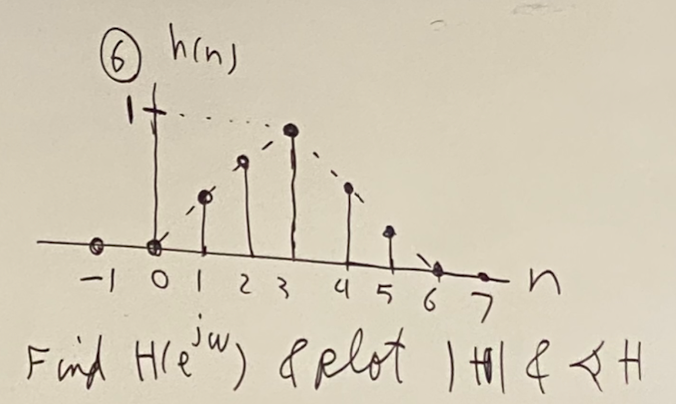 ⑥ h(n)
1
-1 0 1 2 3 4 5 6 7 n
Find H(e^jω) & plot |H| & ∢ H